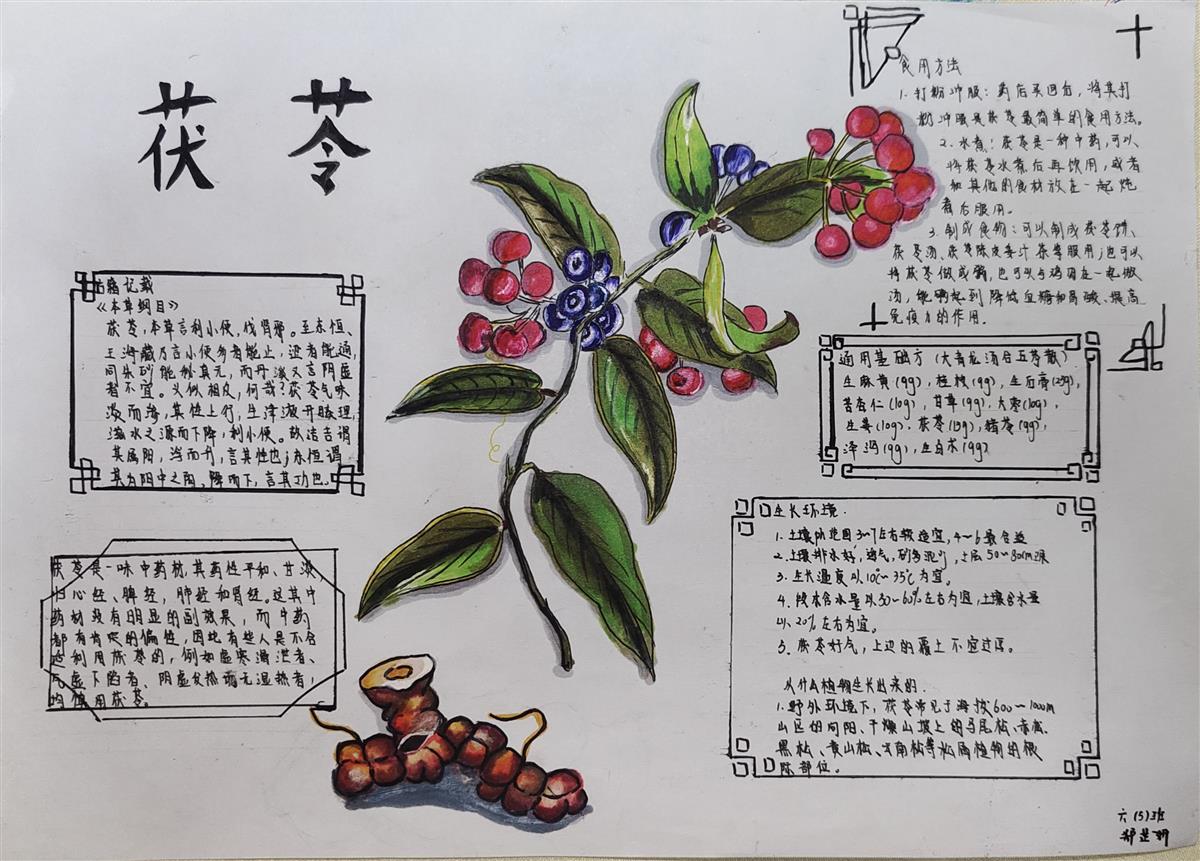 茯 苓
古籍记载
《本草纲目》
茯苓,本草言利小便,伐肾邪。至东恒、
王海藏乃言小便多者能止,涩者能通,
同朱砂能秘真元,而丹溪又言阴虚
者不宜。义似相反,何哉?茯苓气味
淡而渗,其性上行,生津液开腠理,
滋水之源而下降,利小便。故洁古谓
其属阳,浮而升,言其性也;东恒谓
其为阳中之阴,降而下,言其功也。
茯苓是一味中药材,其药性平和、甘淡
归心经、脾经,肺经和肾经。这其中
药材没有明显的副效果,而中药
都有肯定的偏性,因此有些人是不合
适利用茯苓的,例如虚寒滑泄者、
气虚下陷者、阴虚发热而无湿热者,
均慎用茯苓。
食用方法
1. 打粉冲服:药店买回后,将其打
粉冲服是茯苓最简单的食用方法。
2. 水煮:茯苓是一种中药,可以
将茯苓水煮后再饮用,或者
和其他的食材放在一起炖
煮后服用。
3. 制成食物:可以制成茯苓饼、
茯苓汤、茯苓陈皮姜汁茶等服用;也可以
将茯苓做成粥,也可以与鸡肉在一起做
汤,能够起到降低血糖和胃酸、提高
免疫力的作用.
通用基础方(大青龙汤合五苓散)
生麻黄(9g),桂枝(9g),生石膏(25g),
苦杏仁(10g),甘草(9g),大枣(10g),
生姜(10g),茯苓(15g),猪苓(9g),
泽泻(9g),生白术(9g)
生长环境.
1. 土壤pH范围3~7左右较适宜,4~6最合适
2. 土壤排水好,透气,砂多泥少,土层50~80cm深
3. 生长温度以10℃~35℃为宜。
4. 段木含水量以50~60%左右为宜,土壤含水量
以20%左右为宜。
5. 茯苓好气,上边的覆土不宜过厚。
从什么植物生长出来的.
1. 野外环境下,茯苓常见于海拔600~1000m
山区的向阳、干燥山坡上的马尾松、赤松、
黑松、黄山松、云南松等松属植物的根
际部位。
六(5)班